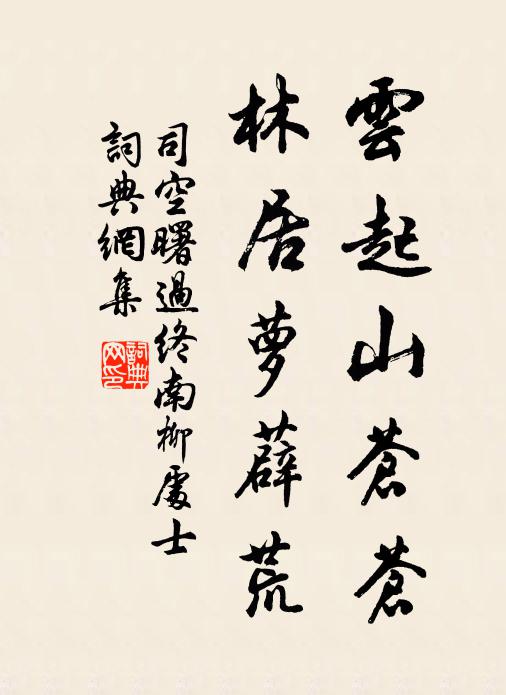 雲起山蒼蒼
林居萝薜荒
司空曙過终南柳處士
詞典網集
詞典網印